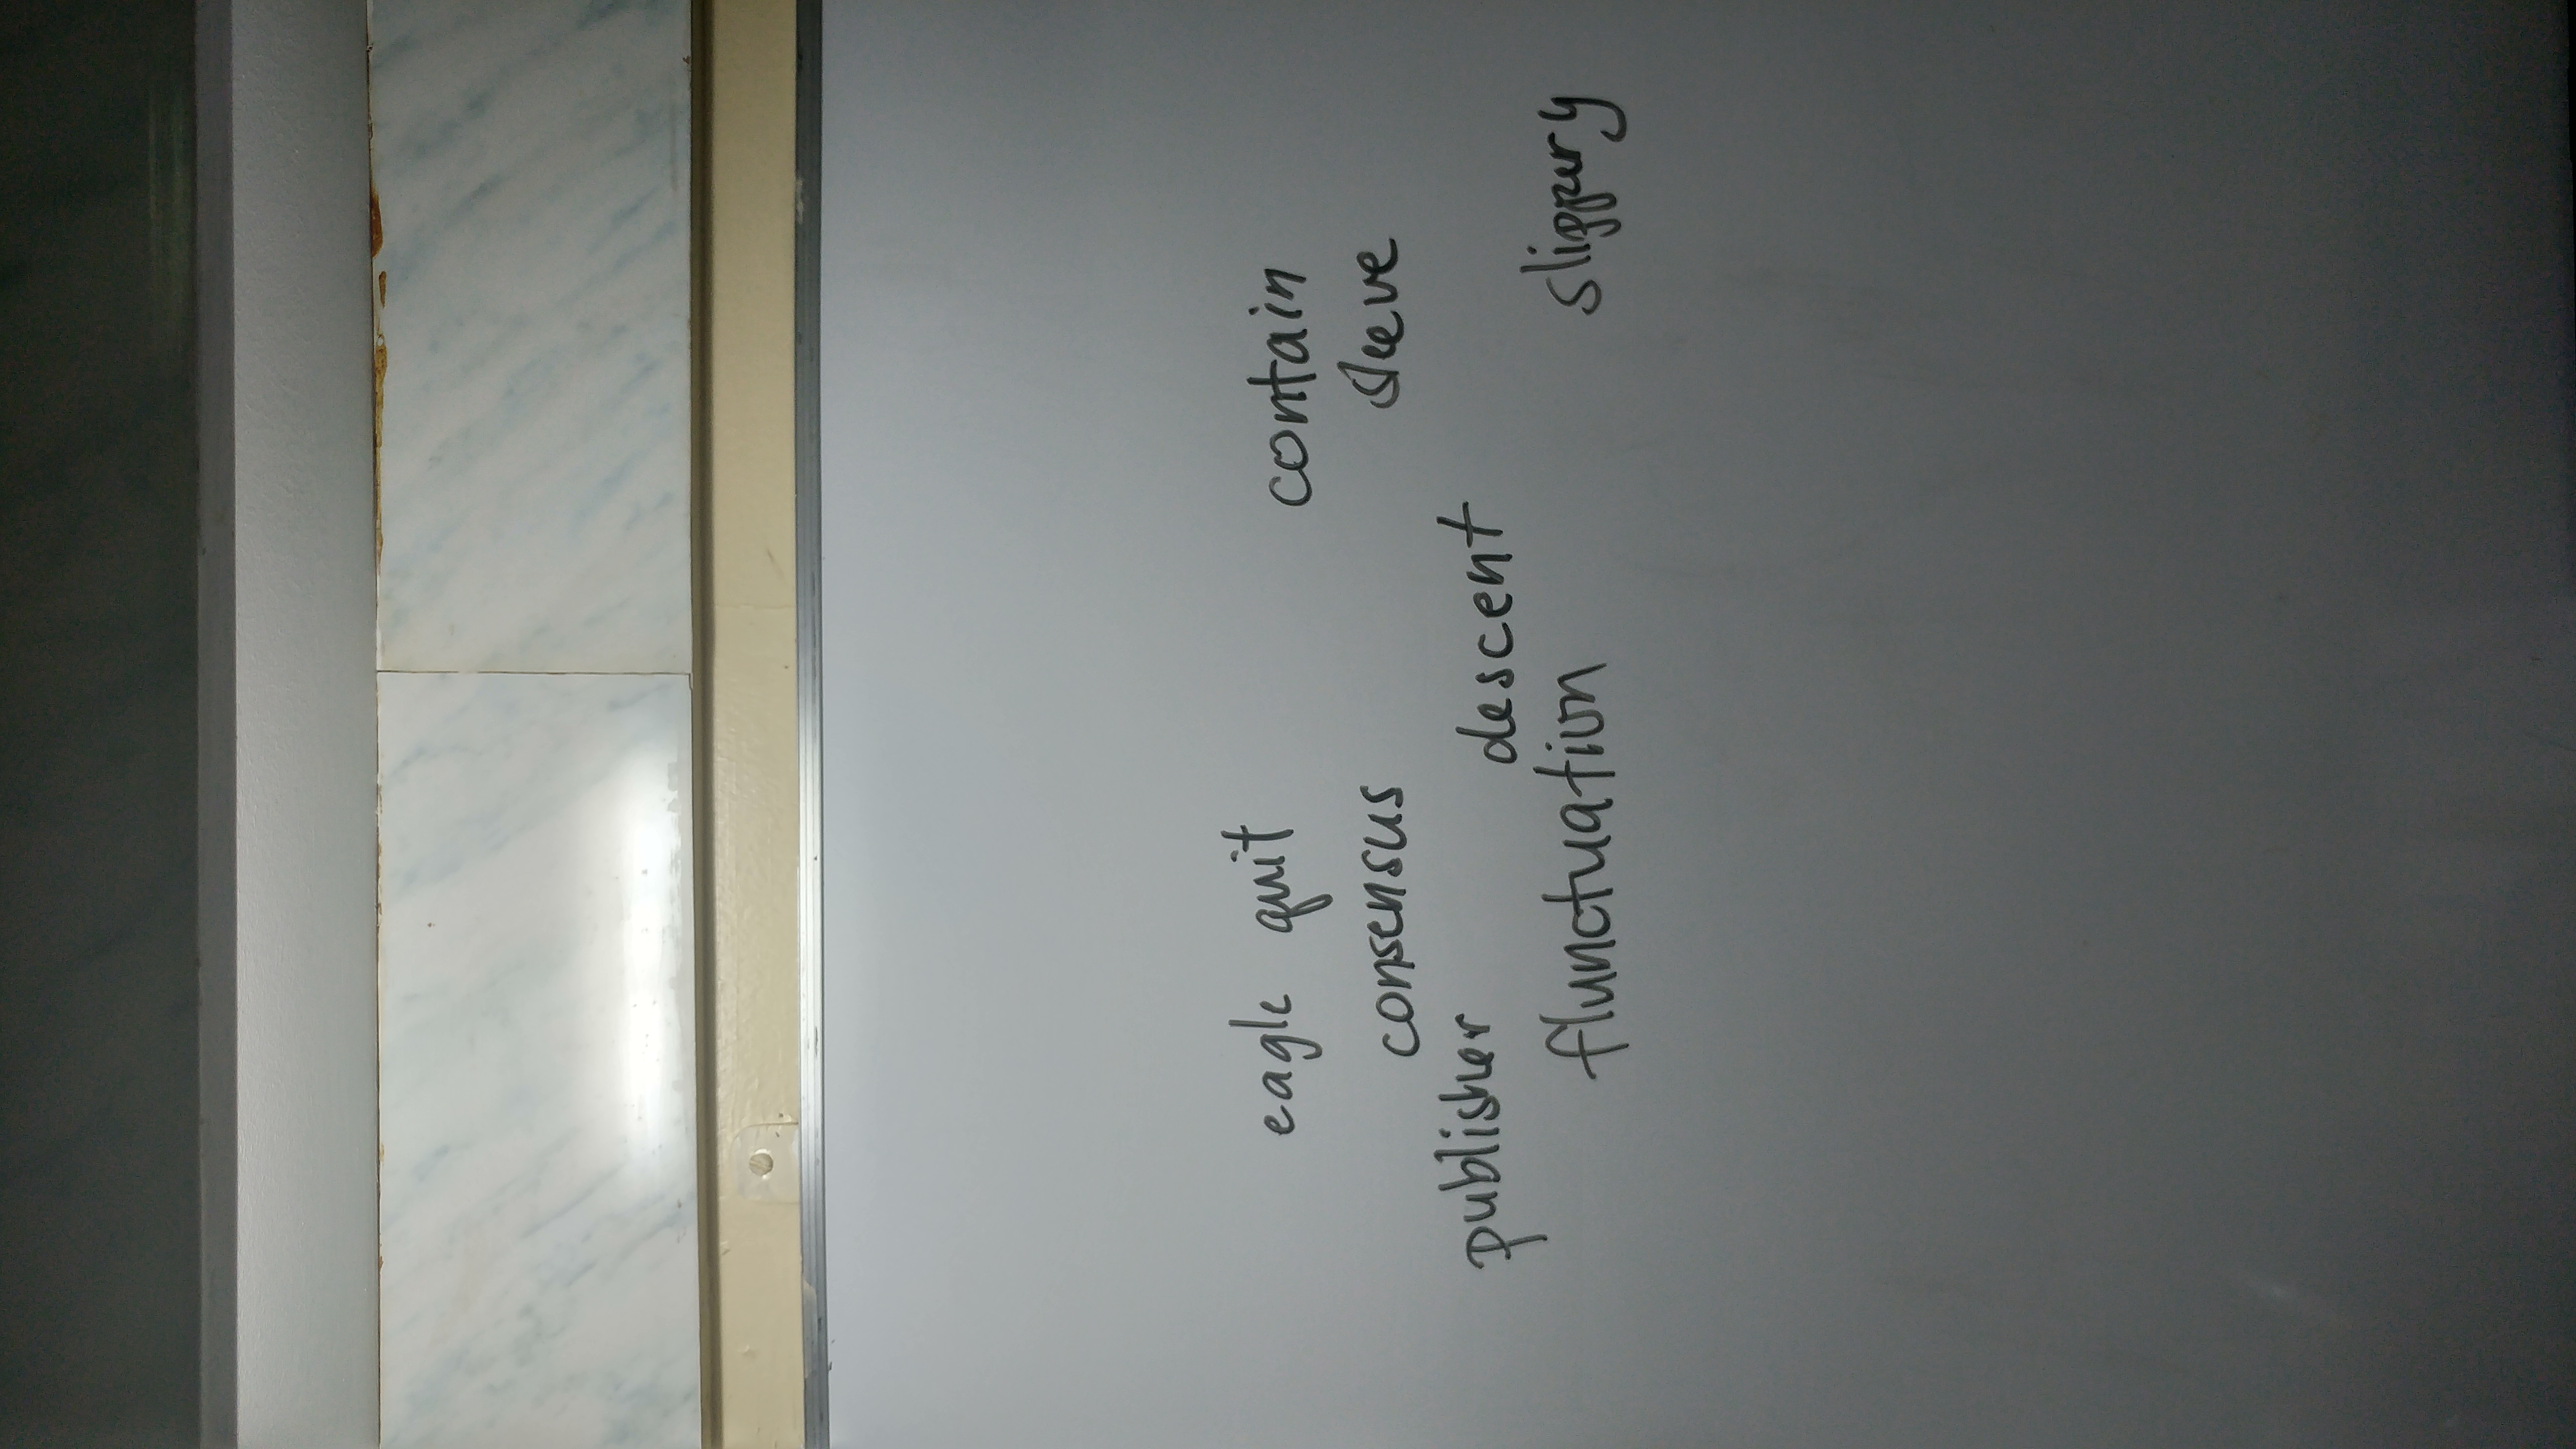 eagle quit contain
consensus sleeve
publisher descent
flunctuation slippery